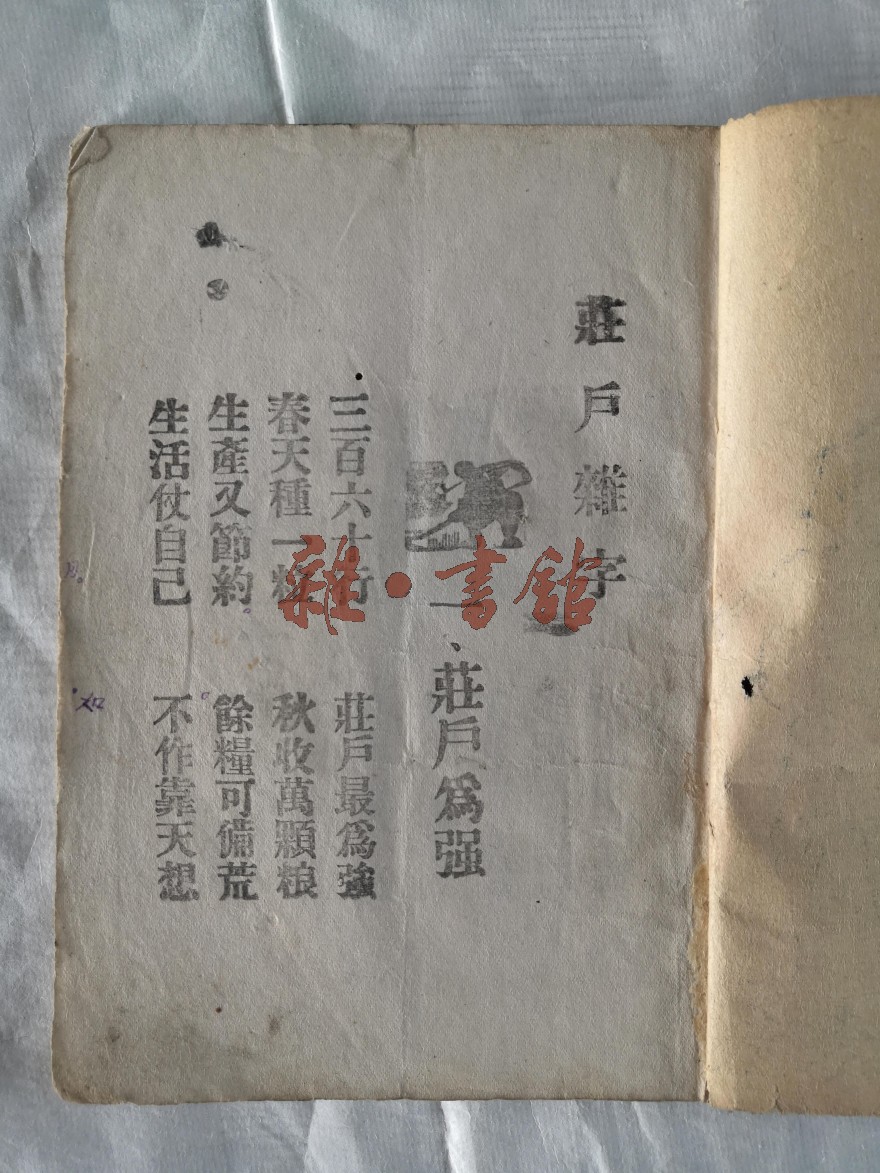 莊戶雜字
一、莊戶為强
三百六十行 莊戶最為強
春天種一粒 秋收萬顆粮
生產又節約 餘糧可備荒
生活仗自己 不作靠天想
雜·書館